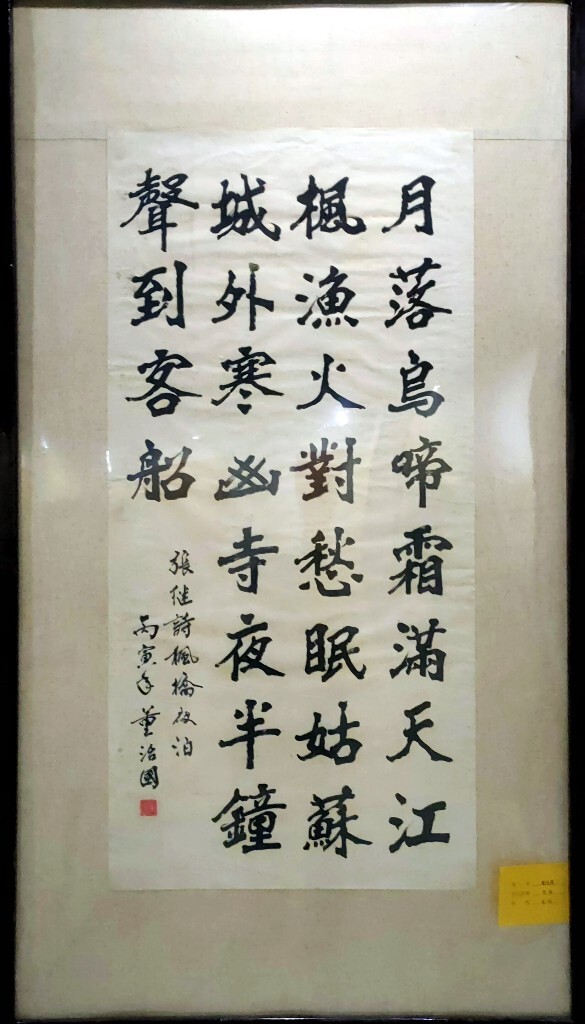 月落烏啼霜滿天江
楓漁火對愁眠姑蘇
城外寒寺夜半鐘
聲到客船
張继詩楓橋夜泊
丙寅年董治國